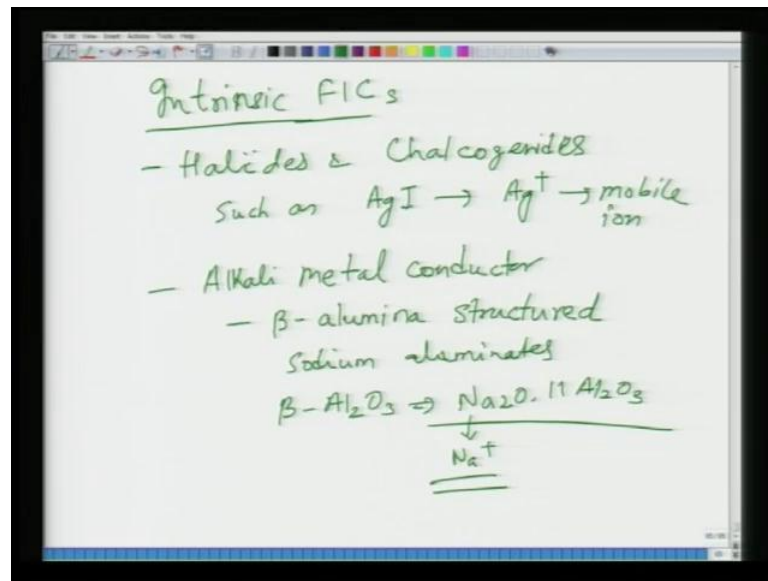 File Edit View Insert Actions Tools Help
Intrinsic FICs
- Halides & Chalcogenides
such as AgI → Ag⁺ → mobile
ion
- Alkali metal conductor
- β-alumina structured
Sodium aluminates
β-Al₂O₃ ⇒ Na₂O. 11 Al₂O₃
↓
Na⁺